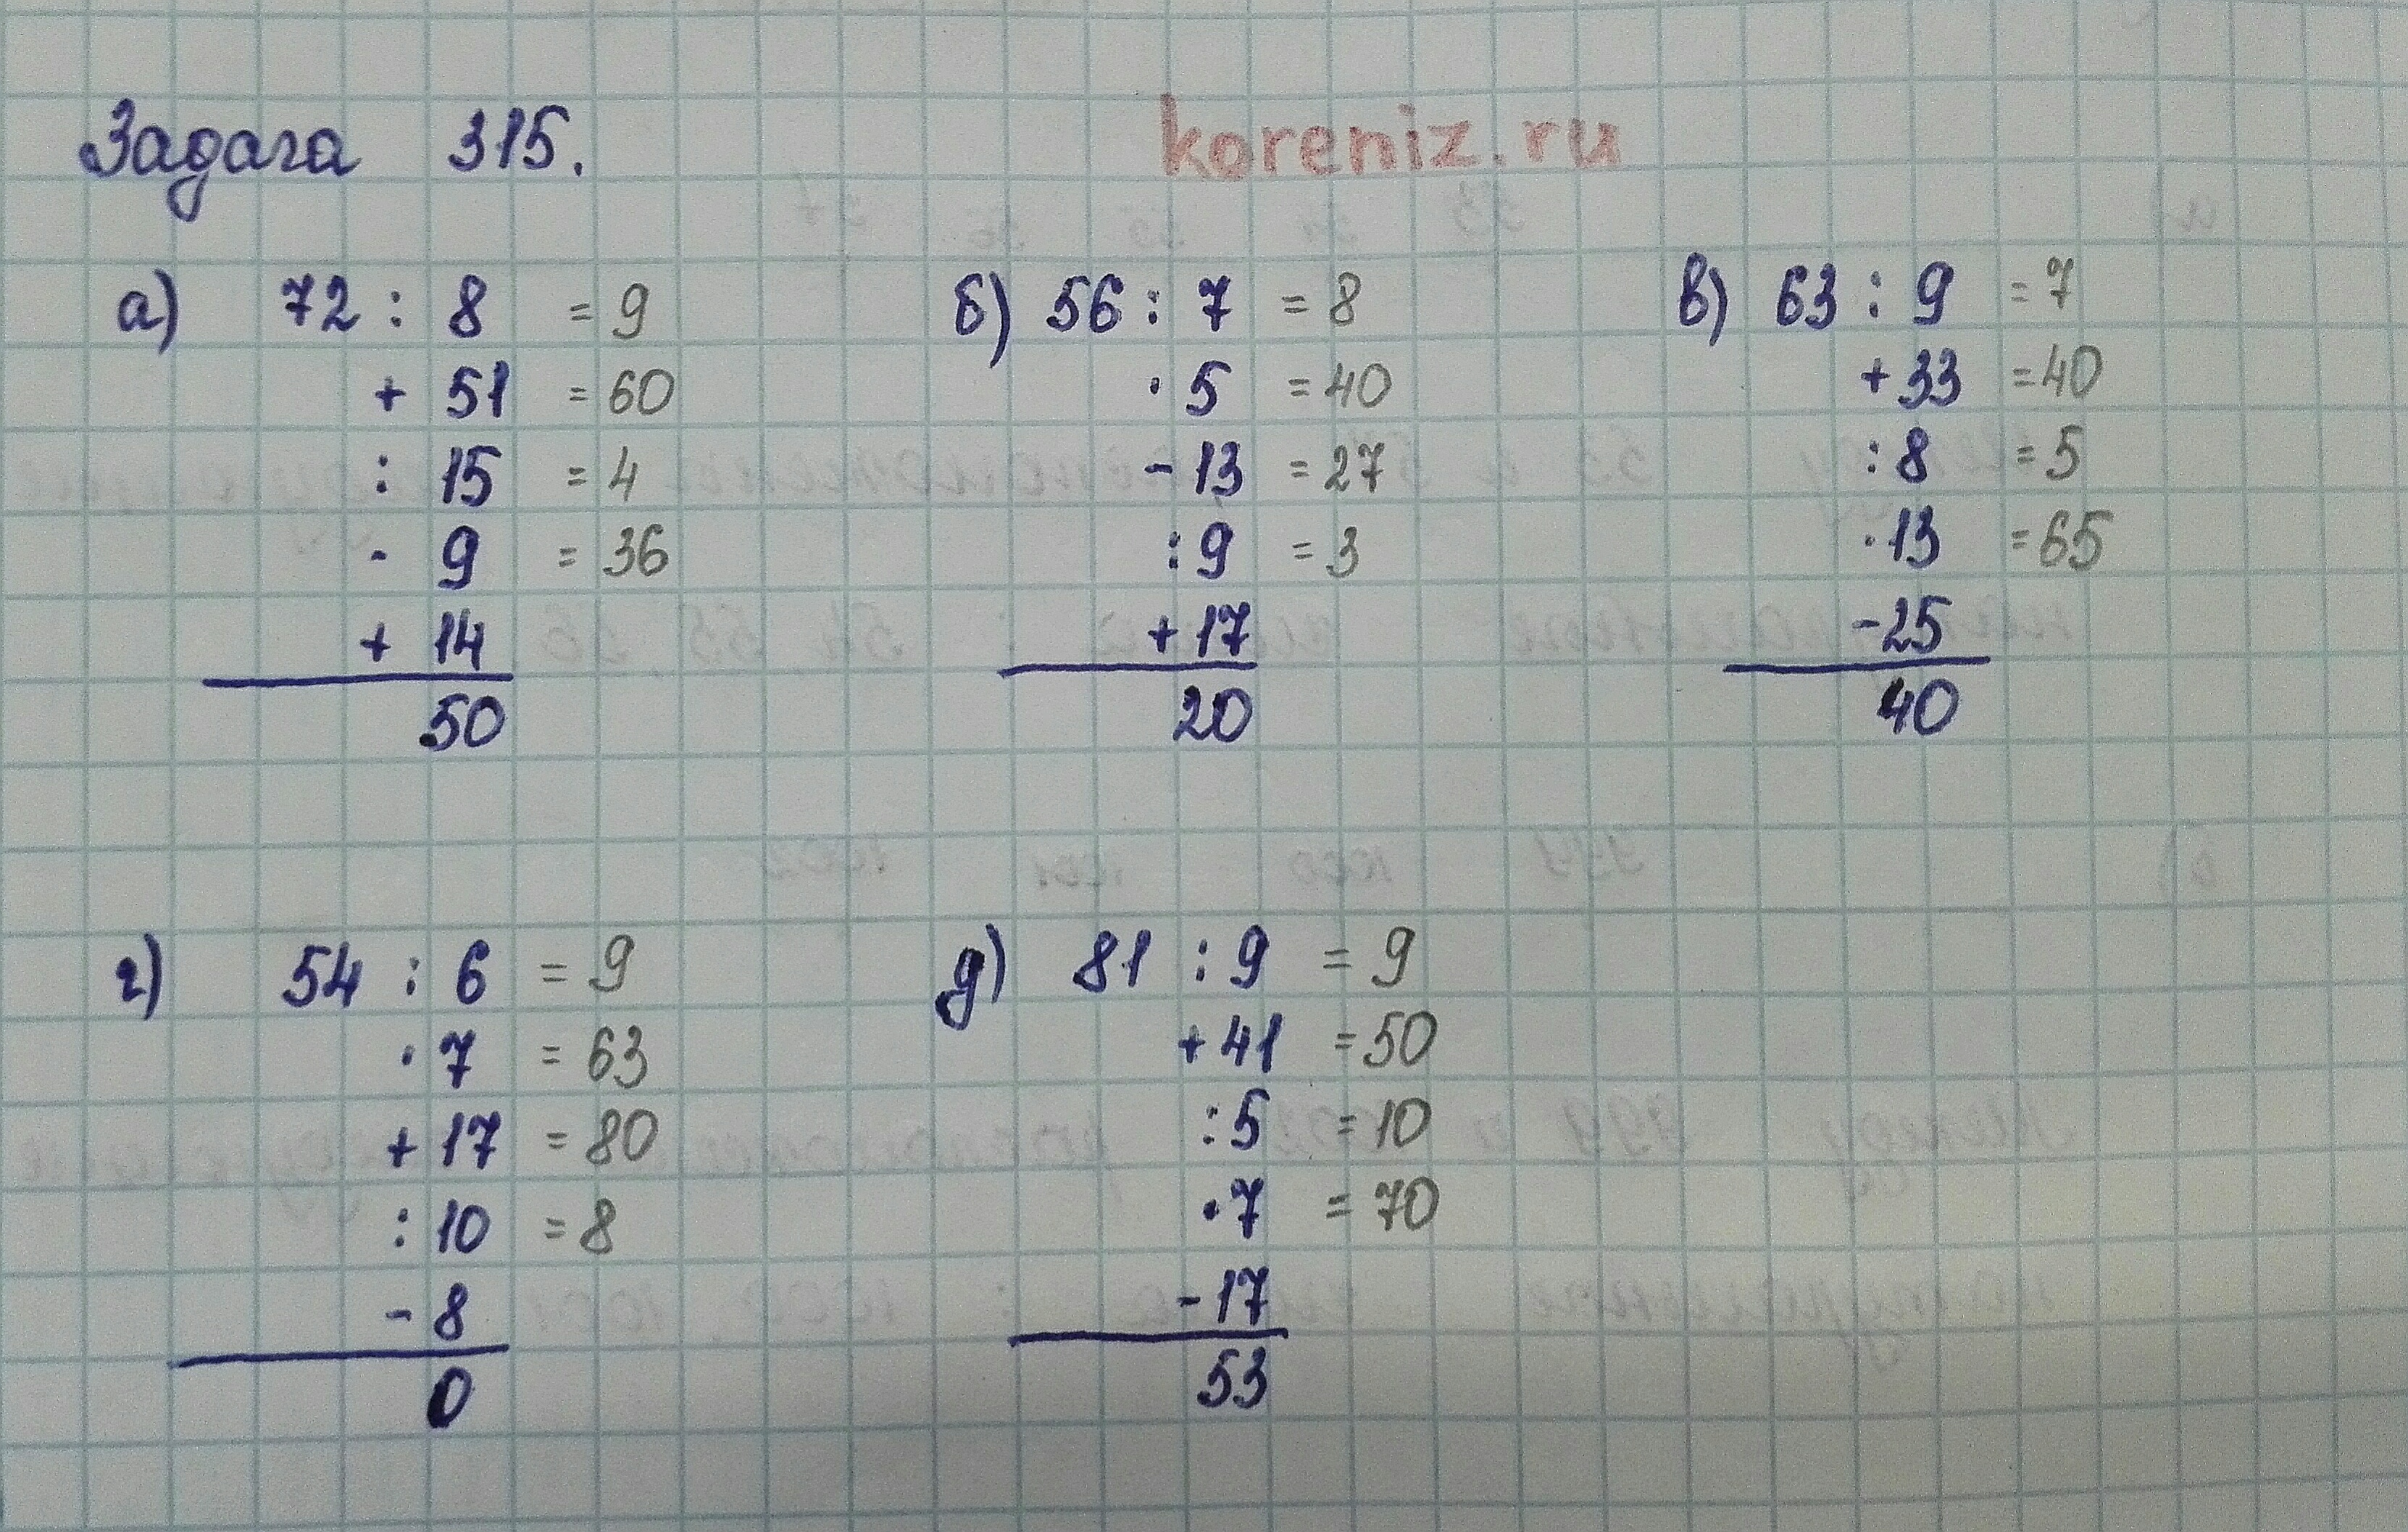 Задача 315.
koreniz.ru
а) 72 : 8 = 9
+ 51 = 60
: 15 = 4
· 9 = 36
+ 14
50
б) 56 : 7 = 8
· 5 = 40
- 13 = 27
: 9 = 3
+ 17
20
в) 63 : 9 = 7
+ 33 = 40
: 8 = 5
· 13 = 65
- 25
40
г) 54 : 6 = 9
· 7 = 63
+ 17 = 80
: 10 = 8
- 8
0
д) 81 : 9 = 9
+ 41 = 50
: 5 = 10
· 7 = 70
- 17
53